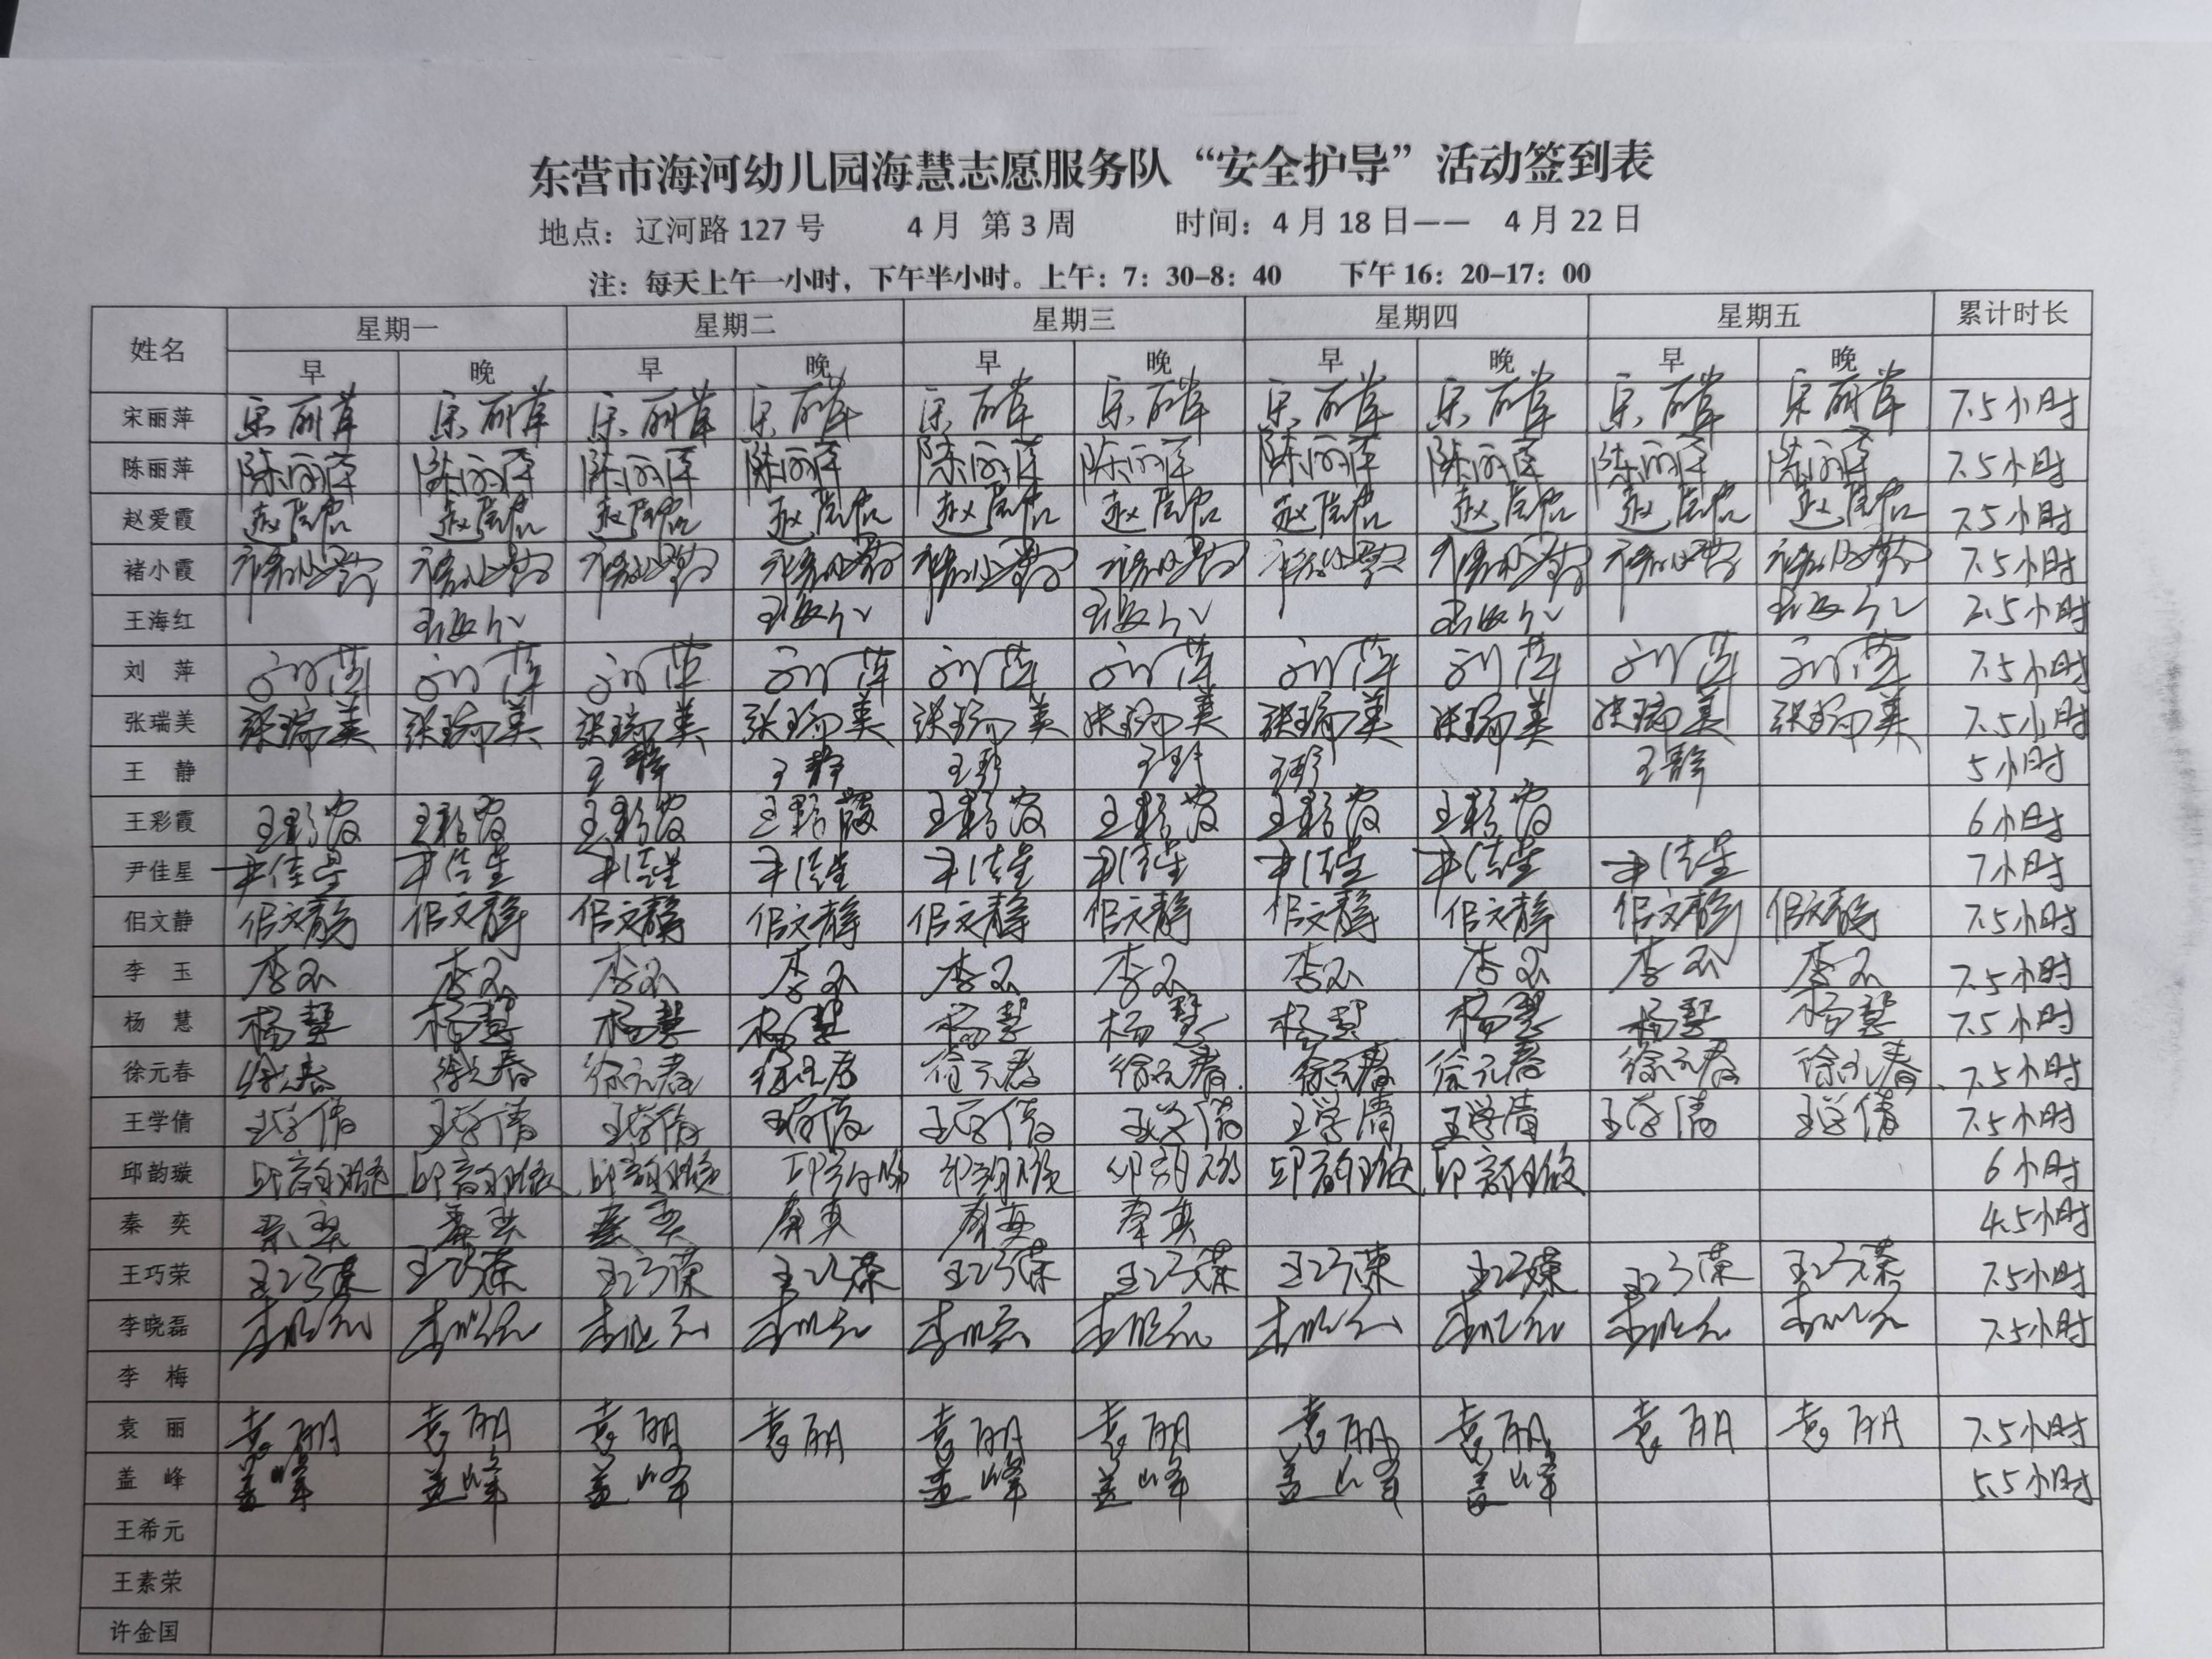 东营市海河幼儿园海慧志愿服务队“安全护导”活动签到表
地点：辽河路 127 号 4 月 第 3 周 时间：4 月 18 日—— 4 月 22 日
注：每天上午一小时，下午半小时。上午：7：30-8：40 下午 16：20-17：00
姓名 星期一 星期二 星期三 星期四 星期五 累计时长
早 晚 早 晚 早 晚 早 晚 早 晚
宋丽萍 宋丽萍 宋丽萍 宋丽萍 宋丽萍 宋丽萍 宋丽萍 宋丽萍 宋丽萍 宋丽萍 宋丽萍 7.5小时
陈丽萍 陈丽萍 陈丽萍 陈丽萍 陈丽萍 陈丽萍 陈丽萍 陈丽萍 陈丽萍 陈丽萍 陈丽萍 7.5小时
赵爱霞 赵爱霞 赵爱霞 赵爱霞 赵爱霞 赵爱霞 赵爱霞 赵爱霞 赵爱霞 赵爱霞 赵爱霞 7.5小时
褚小霞 褚小霞 褚小霞 褚小霞 褚小霞 褚小霞 褚小霞 褚小霞 褚小霞 褚小霞 褚小霞 7.5小时
王海红 王海红 王海红 王海红 王海红 王海红 2.5小时
刘 萍 刘萍 刘萍 刘萍 刘萍 刘萍 刘萍 刘萍 刘萍 刘萍 刘萍 7.5小时
张瑞美 张瑞美 张瑞美 张瑞美 张瑞美 张瑞美 张瑞美 张瑞美 张瑞美 张瑞美 张瑞美 7.5小时
王 静 王静 王静 王静 王静 王静 王静 5小时
王彩霞 王彩霞 王彩霞 王彩霞 王彩霞 王彩霞 王彩霞 王彩霞 王彩霞 6小时
尹佳星 尹佳星 尹佳星 尹佳星 尹佳星 尹佳星 尹佳星 尹佳星 尹佳星 尹佳星 7小时
佀文静 佀文静 佀文静 佀文静 佀文静 佀文静 佀文静 佀文静 佀文静 佀文静 佀文静 7.5小时
李 玉 李玉 李玉 李玉 李玉 李玉 李玉 李玉 李玉 李玉 李玉 7.5小时
杨 慧 杨慧 杨慧 杨慧 杨慧 杨慧 杨慧 杨慧 杨慧 杨慧 杨慧 7.5小时
徐元春 徐元春 徐元春 徐元春 徐元春 徐元春 徐元春 徐元春 徐元春 徐元春 徐元春 7.5小时
王学倩 王学倩 王学倩 王学倩 王学倩 王学倩 王学倩 王学倩 王学倩 王学倩 王学倩 7.5小时
邱韵璇 邱韵璇 邱韵璇 邱韵璇 邱韵璇 邱韵璇 邱韵璇 邱韵璇 邱韵璇 6小时
秦 奕 秦奕 秦奕 秦奕 秦奕 秦奕 秦奕 4.5小时
王巧荣 王巧荣 王巧荣 王巧荣 王巧荣 王巧荣 王巧荣 王巧荣 王巧荣 王巧荣 王巧荣 7.5小时
李晓磊 李晓磊 李晓磊 李晓磊 李晓磊 李晓磊 李晓磊 李晓磊 李晓磊 李晓磊 李晓磊 7.5小时
李 梅
袁 丽 袁丽 袁丽 袁丽 袁丽 袁丽 袁丽 袁丽 袁丽 袁丽 袁丽 7.5小时
盖 峰 盖峰 盖峰 盖峰 盖峰 盖峰 盖峰 盖峰 5.5小时
王希元
王素荣
许金国